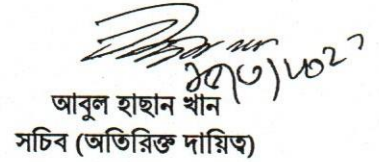 আবুল হাছান খান
সচিব (অতিরিক্ত দায়িত্ব)